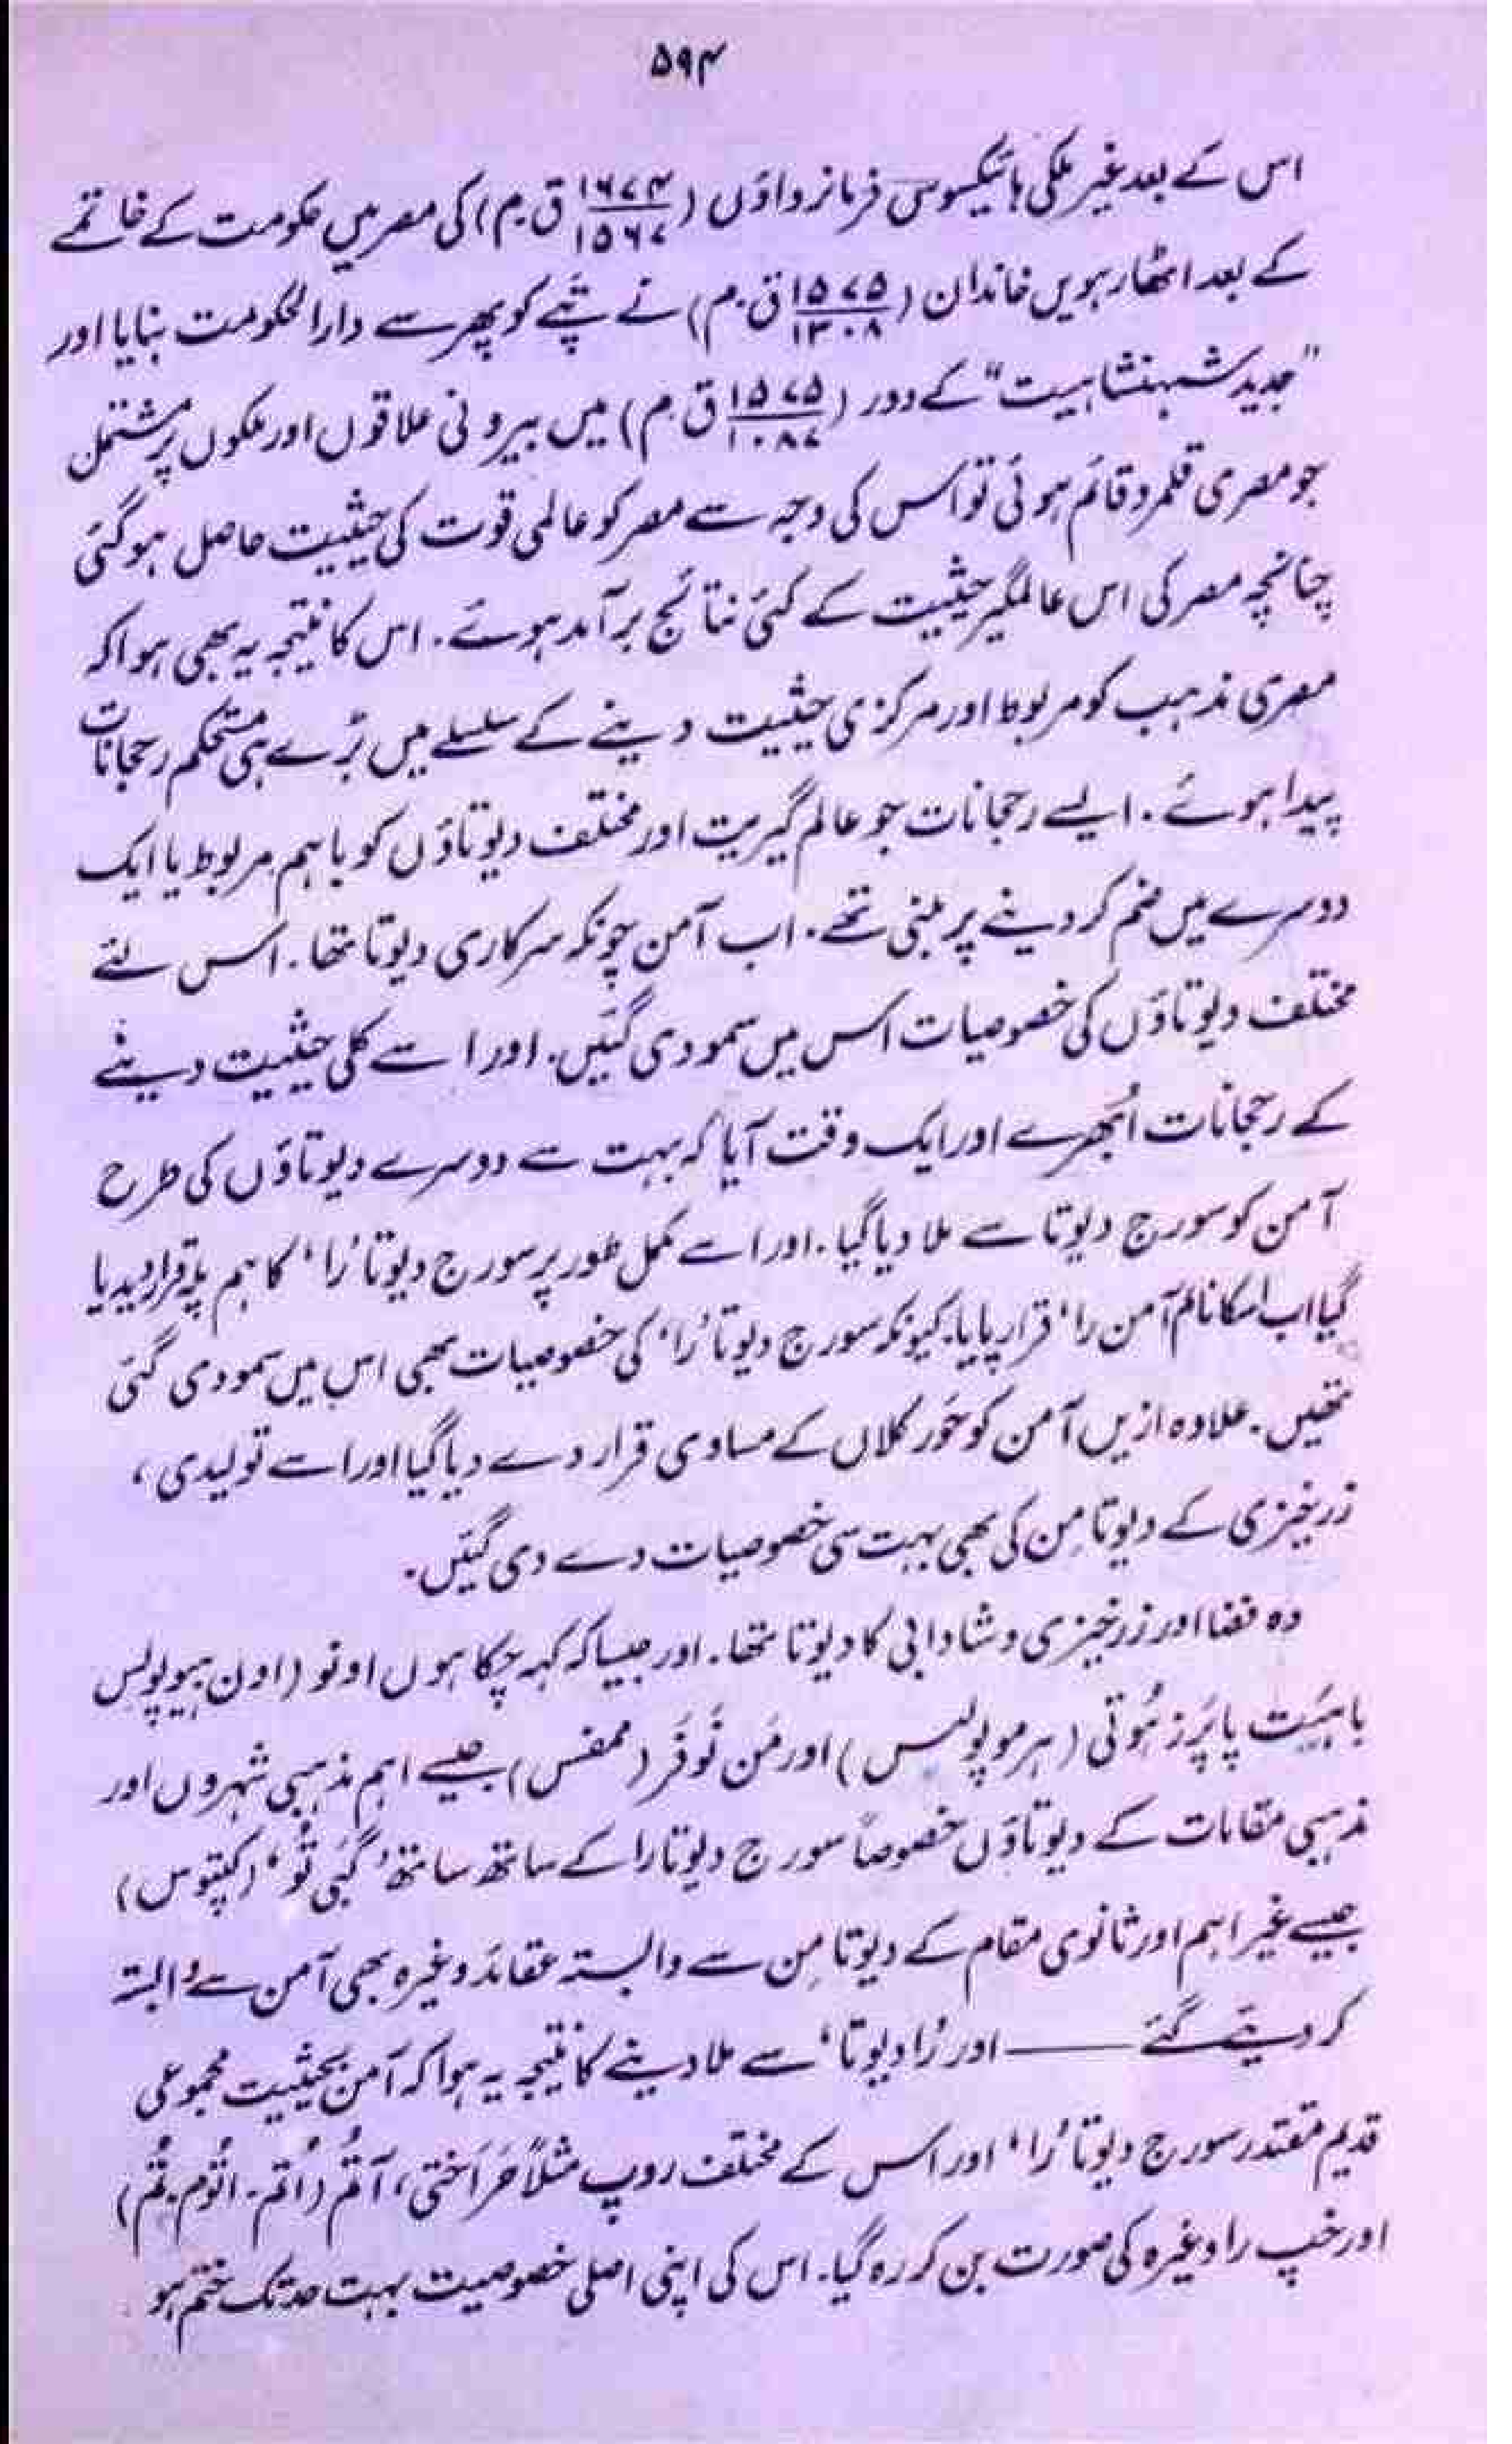 ۵۹۴
اس کے بعد غیر ملکی ہائیکسوس فرمانرواؤں (۱۶۷۴/۱۵۶۷ ق۔م) کی مصر میں حکومت کے خاتمے
کے بعد اٹھارہویں خاندان (۱۵۷۵/۱۳۰۸ ق۔م) نے تپے کو پھر سے دارالحکومت بنایا اور
"جدید شہنشاہیت" کے دور (۱۵۷۵/۱۰۸۷ ق۔م) میں بیرونی علاقوں اور ملکوں پر مشتمل
جو مصری قلمرو قائم ہوئی تو اس کی وجہ سے مصر کو عالمی قوت کی حیثیت حاصل ہوگئی
چنانچہ مصر کی اس عالمگیر حیثیت کے کئی نتائج برآمد ہوئے۔ اس کا نتیجہ یہ بھی ہوا کہ
مصری مذہب کو مربوط اور مرکزی حیثیت دینے کے سلسلے میں بڑے ہی مستحکم رجحانات
پیدا ہوئے۔ ایسے رجحانات جو عالم گیریت اور مختلف دیوتاؤں کو باہم مربوط یا ایک
دوسرے میں ضم کر دینے پر مبنی تھے۔ اب آمن چونکہ سرکاری دیوتا تھا۔ اس لئے
مختلف دیوتاؤں کی خصوصیات اس میں سمو دی گئیں۔ اور اسے کلی حیثیت دینے
کے رجحانات اُبھرے اور ایک وقت آیا کہ بہت سے دوسرے دیوتاؤں کی طرح
آمن کو سورج دیوتا سے ملا دیا گیا۔ اور اسے مکمل طور پر سورج دیوتا 'را' کا ہم پلہ قرار دیدیا
گیا اب اسکا نام 'آمن را' قرار پایا۔ کیونکہ سورج دیوتا 'را' کی خصوصیات بھی اس میں سمو دی گئی
تھیں۔ علاوہ ازیں آمن کو حَور کلاں کے مساوی قرار دے دیا گیا اور اسے تولیدی،
زرخیزی کے دیوتا مِن کی بھی بہت سی خصوصیات دے دی گئیں۔
وہ فضا اور زرخیزی و شادابی کا دیوتا تھا۔ اور جیسا کہ کہہ چکا ہوں اونو (اون ہیوپولس
یا ہیَت پاپَرز ہُوتی (ہرموپولس) اور مَن نَوفَر (ممفس) جیسے اہم مذہبی شہروں اور
مذہبی مقامات کے دیوتاؤں خصوصاً سورج دیوتا را کے ساتھ ساتھ 'گَبی تُو' (کپتوس)
جیسے غیر اہم اور ثانوی مقام کے دیوتا مِن سے وابستہ عقائد وغیرہ بھی آمن سے وابستہ
کر دیئے گئے —— اور 'را دیوتا' سے ملا دینے کا نتیجہ یہ ہوا کہ آمن بحیثیت مجموعی
قدیم مقتدر سورج دیوتا 'را' اور اس کے مختلف روپ مثلاً حَراَختی، آتُم (اُتم۔ اتُوم۔ تُم)
اور خپ را وغیرہ کی صورت بن کر رہ گیا۔ اس کی اپنی اصلی خصوصیت بہت حد تک ختم ہو